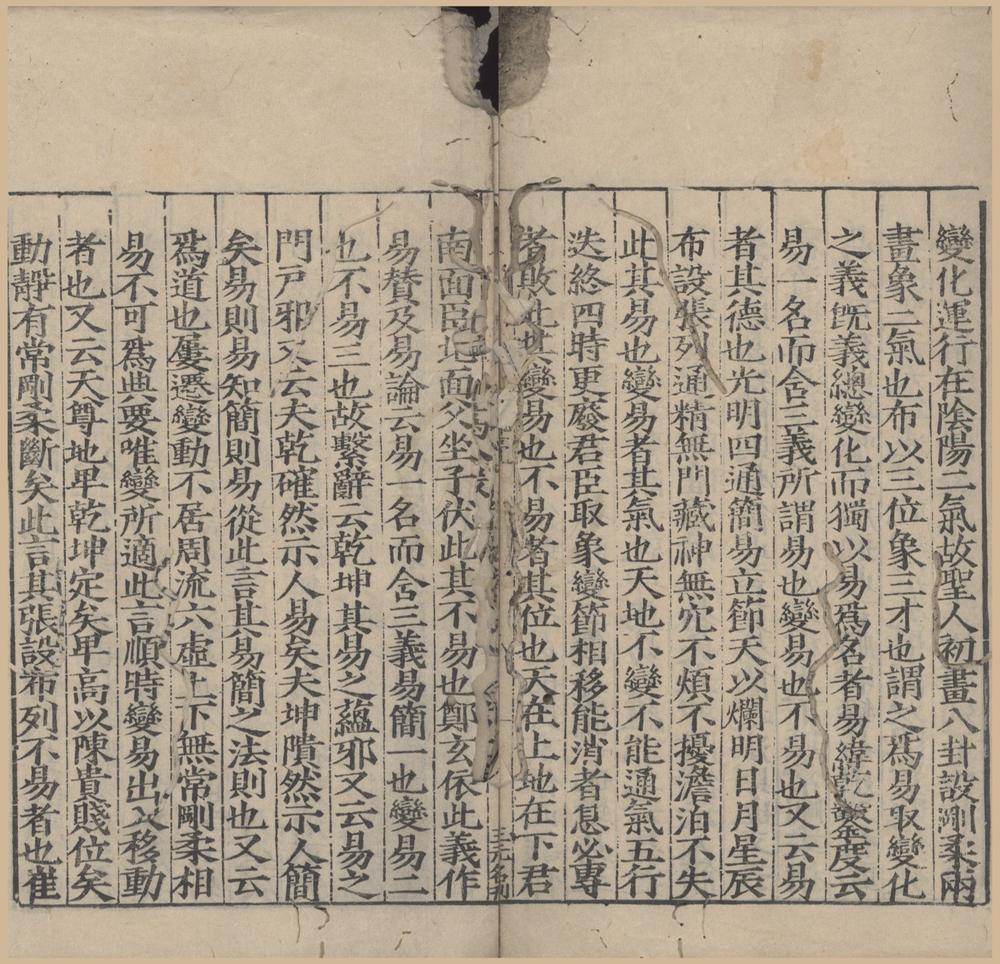 變化運行在陰陽二氣故聖人初畫八卦設剛柔兩
畫象二氣也布以三位象三才也謂之爲易取變化
之義旣義緫變化而獨以易爲名者易緯乾鑿度云
易一名而含三義所謂易也變易也不易也又云易
者其德也光明四通簡易立節天以爛明日月星辰
布設張列通精無門藏神無穴不煩不擾澹泊不失
此其易也變易者其氣也天地不變不能通氣五行
迭終四時更廢君臣取象變節相移能消者息必專
者敗此其變易也不易者其位也天在上地在下君
南面臣北面父坐子伏此其不易也鄭玄依此義作
易賛及易論云易一名而含三義易簡一也變易二
也不易三也故繫辭云乾坤其易之蘊邪又云易之
門戸邪又云夫乾確然示人易矣夫坤隤然示人簡
矣易則易知簡則易從此言其易簡之法則也又云
爲道也屢遷變動不居周流六虛上下無常剛柔相
易不可爲典要唯變所適此言順時變易出入移動
者也又云天尊地卑乾坤定矣卑高以陳貴賤位矣
動靜有常剛柔斷矣此言其張設布列不易者也崔